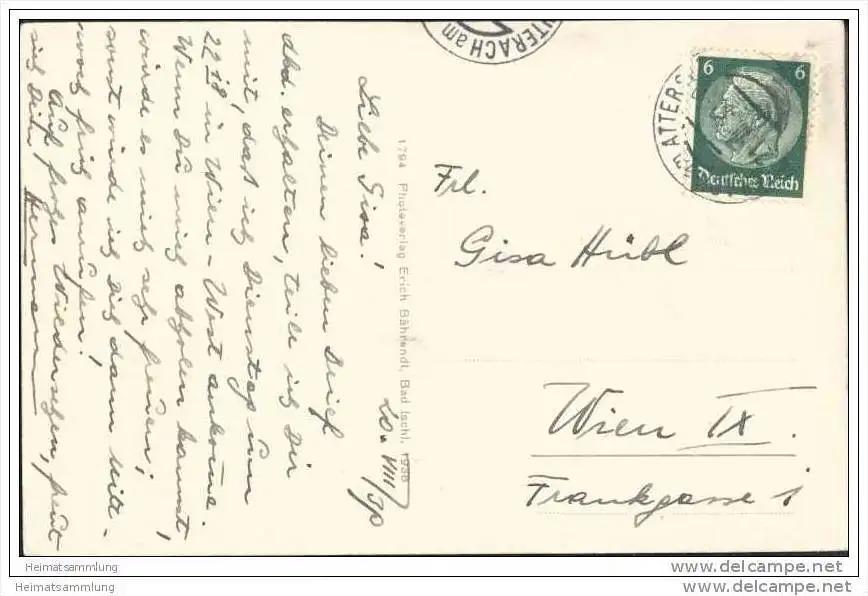 UNTERACH am
6 6
Deutsches Reich
ATTERS
20. VIII/39
Liebe Gisa!
Deinen lieben Brief
dkd. erhalten, teile ich Dir
mit, daß ich Dienstag um
22 18 in Wien-West ankomme.
Wenn Du mich abholen kannst,
würde es mich sehr freuen;
sonst würde ich Dich dann Mitt-
woch früh anrufen!
Auf frohes Wiedersehen, freut
sich Dein Hermann
1794 Photoverlag Erich Bährendt, Bad Ischl, 1938
Frl.
Gisa Hübl
Wien IX.
Frankgasse 1
Heimatsammlung
Heimatsammlung
www.delcampe.net
www.delcampe.net